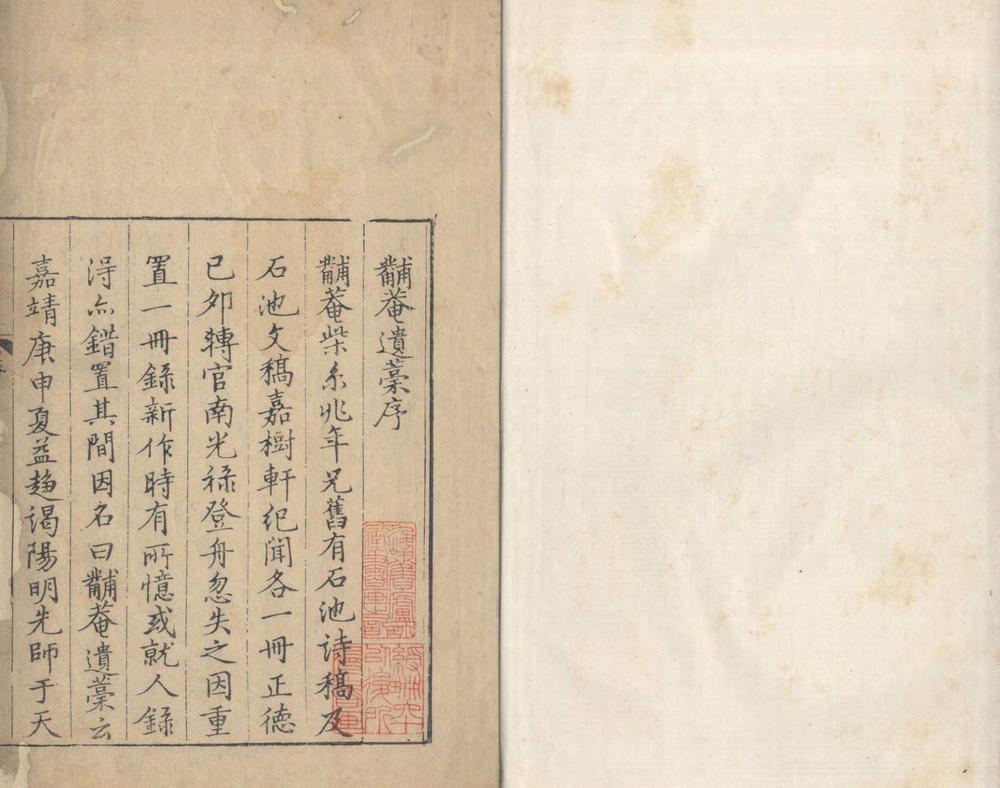 黼菴遺藁序
黼菴柴京兆年兄舊有石池詩稿及
石池文稿嘉樹軒紀聞各一冊正德
己卯轉官南光祿登舟忽失之因重
置一冊錄新作時有所憶或就人錄
得亦錯置其間因名曰黼菴遺藁云
嘉靖庚申夏益趨謁陽明先師于天